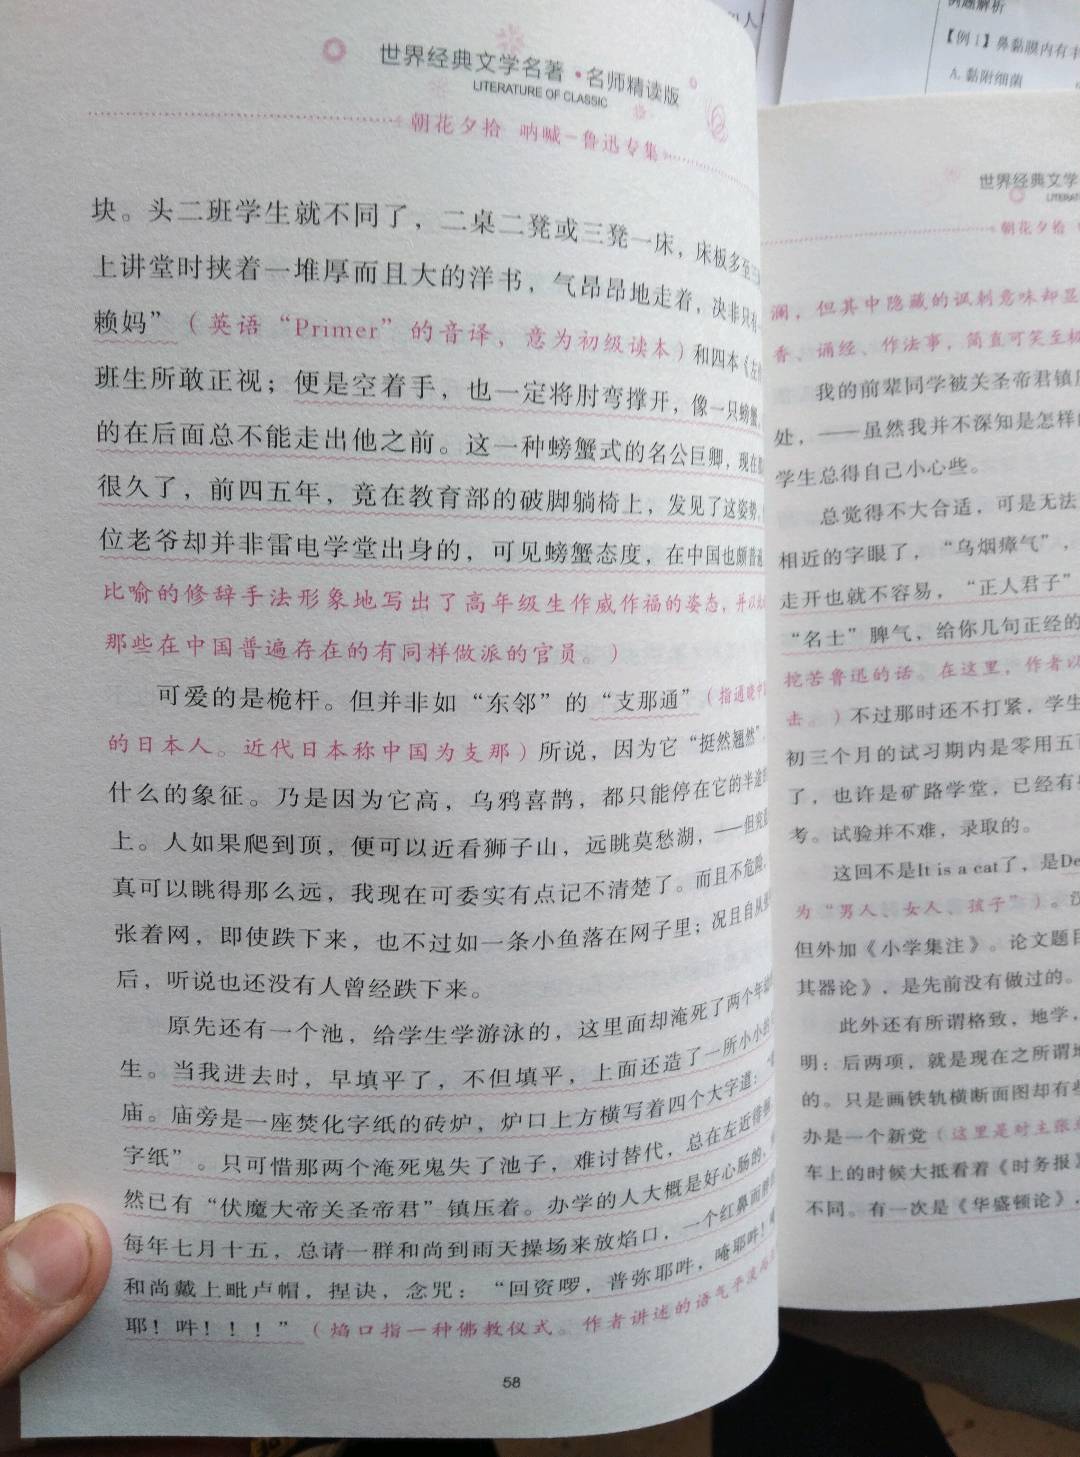 世界经典文学名著·名师精读版
LITERATURE OF CLASSIC
朝花夕拾 呐喊－鲁迅专集
块。头二班学生就不同了，二桌二凳或三凳一床，床板多至三
上讲堂时挟着一堆厚而且大的洋书，气昂昂地走着，决非只有一
赖妈”（英语“Primer”的音译，意为初级读本）和四本《左
班生所敢正视；便是空着手，也一定将肘弯撑开，像一只螃蟹，
的在后面总不能走出他之前。这一种螃蟹式的名公巨卿，现在
很久了，前四五年，竟在教育部的破脚躺椅上，发见了这姿势，
位老爷却并非雷电学堂出身的，可见螃蟹态度，在中国也颇普遍
比喻的修辞手法形象地写出了高年级生作威作福的姿态，并以
那些在中国普遍存在的有同样做派的官员。）
可爱的是桅杆。但并非如“东邻”的“支那通”（指通晓中
的日本人。近代日本称中国为支那）所说，因为它“挺然翘然”，
什么的象征。乃是因为它高，乌鸦喜鹊，都只能停在它的半途
上。人如果爬到顶，便可以近看狮子山，远眺莫愁湖，——但究竟
真可以眺得那么远，我现在可委实有点记不清楚了。而且不危险，
张着网，即使跌下来，也不过如一条小鱼落在网子里；况且自从
后，听说也还没有人曾经跌下来。
原先还有一个池，给学生学游泳的，这里面却淹死了两个年
生。当我进去时，早填平了，不但填平，上面还造了一所小小的
庙。庙旁是一座焚化字纸的砖炉，炉口上方横写着四个大字道：“
字纸”。只可惜那两个淹死鬼失了池子，难讨替代，总在左近徘徊
然已有“伏魔大帝关圣帝君”镇压着。办学的人大概是好心肠的，
每年七月十五，总请一群和尚到雨天操场来放焰口，一个红鼻而胖
和尚戴上毗卢帽，捏诀，念咒：“回资啰，普弥耶吽，唵耶吽！
耶！吽！！！”（焰口指一种佛教仪式。作者讲述的语气平淡
58
例题解析
【例1】鼻黏膜内有丰
A. 黏附细菌
世界经典文学
朝花夕拾
澜，但其中隐藏的讽刺意味却显
香、诵经、作法事，简直可笑至极
我的前辈同学被关圣帝君镇
处，——虽然我并不深知是怎样
学生总得自己小心些。
总觉得不大合适，可是无法
相近的字眼了，“乌烟瘴气”，
走开也就不容易，“正人君子”
“名士”脾气，给你几句正经的
挖苦鲁迅的话。在这里，作者以
击。）不过那时还不打紧，学生
初三个月的试习期内是零用五
了，也许是矿路学堂，已经有
考。试验并不难，录取的。
这回不是It is a cat了，是De
为“男人、女人、孩子”）。
但外加《小学集注》。论文题目
其器论》，是先前没有做过的。
此外还有所谓格致，地学，
明：后两项，就是现在之所谓地
的。只是画铁轨横断面图却有些
办是一个新党（这里是对主张
车上的时候大抵看着《时务报》
不同。有一次是《华盛顿论》，